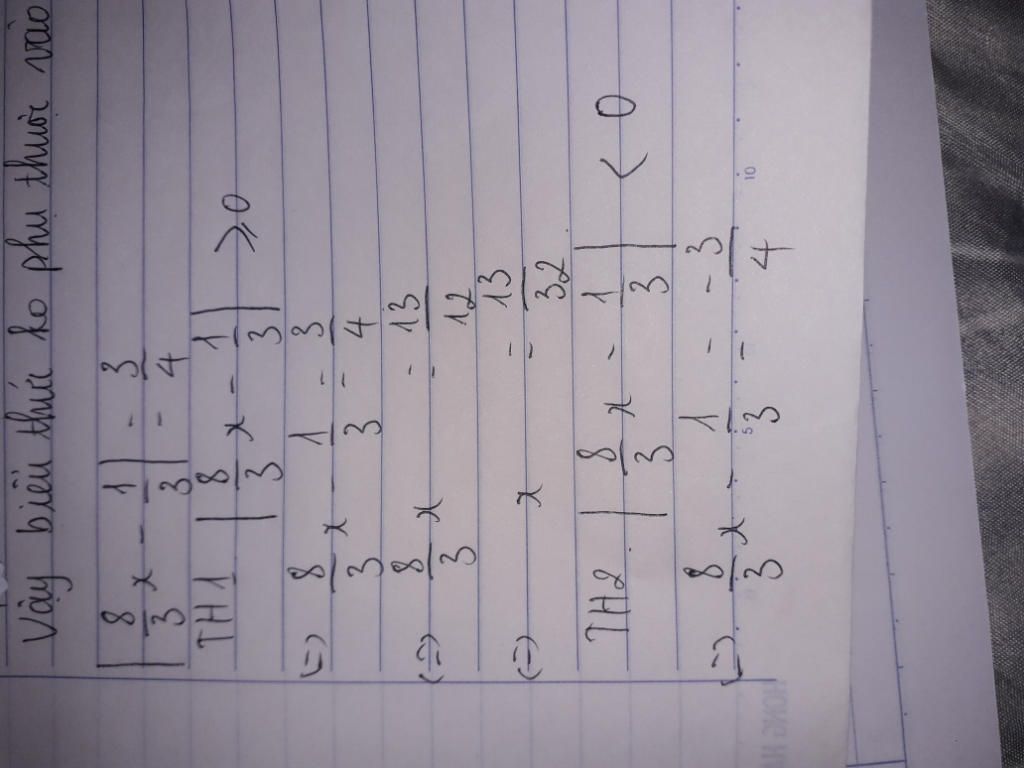 Vậy biểu thức ko phụ thuộc vào
|8/3 x - 1/3| = 3/4
TH1 |8/3 x - 1/3| ⩾ 0
(=) 8/3 x - 1/3 = 3/4
(=) 8/3 x = 13/12
(=) x = 13/32
TH2 |8/3 x - 1/3| < 0
(=) 8/3 x - 1/3 = -3/4
5
10